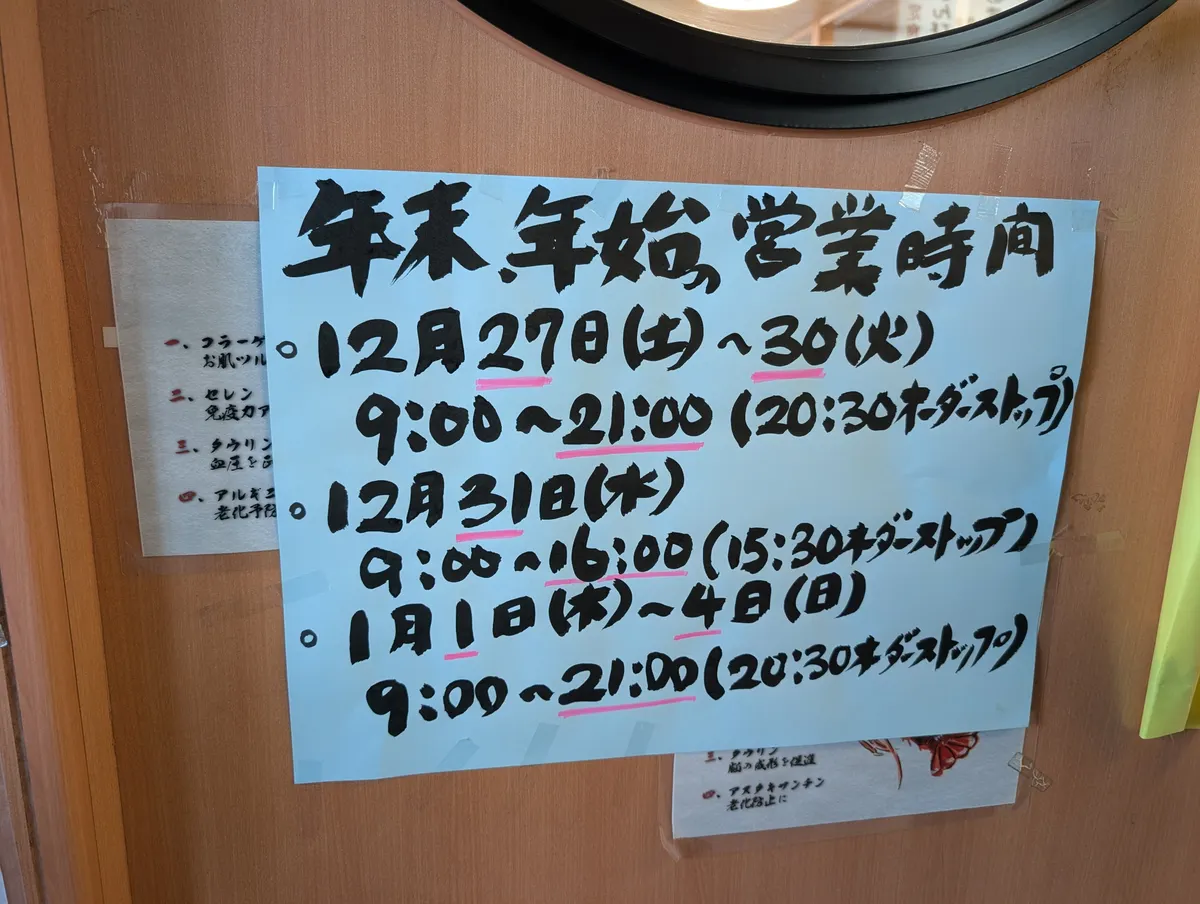 年末、年始の営業時間
○12月27日(土)~30(火)
9:00~21:00(20:30オーダーストップ)
○12月31日(水)
9:00~16:00(15:30オーダーストップ)
○1月1日(木)~4日(日)
9:00~21:00(20:30オーダーストップ)
一、コラーゲ
お肌ツル
二、セレン
免疫力ア
三、タウリン
血圧を正
四、アルギニ
老化予防
三、タウリン
脳の成形を促進
四、アスタキサンチン
老化防止に